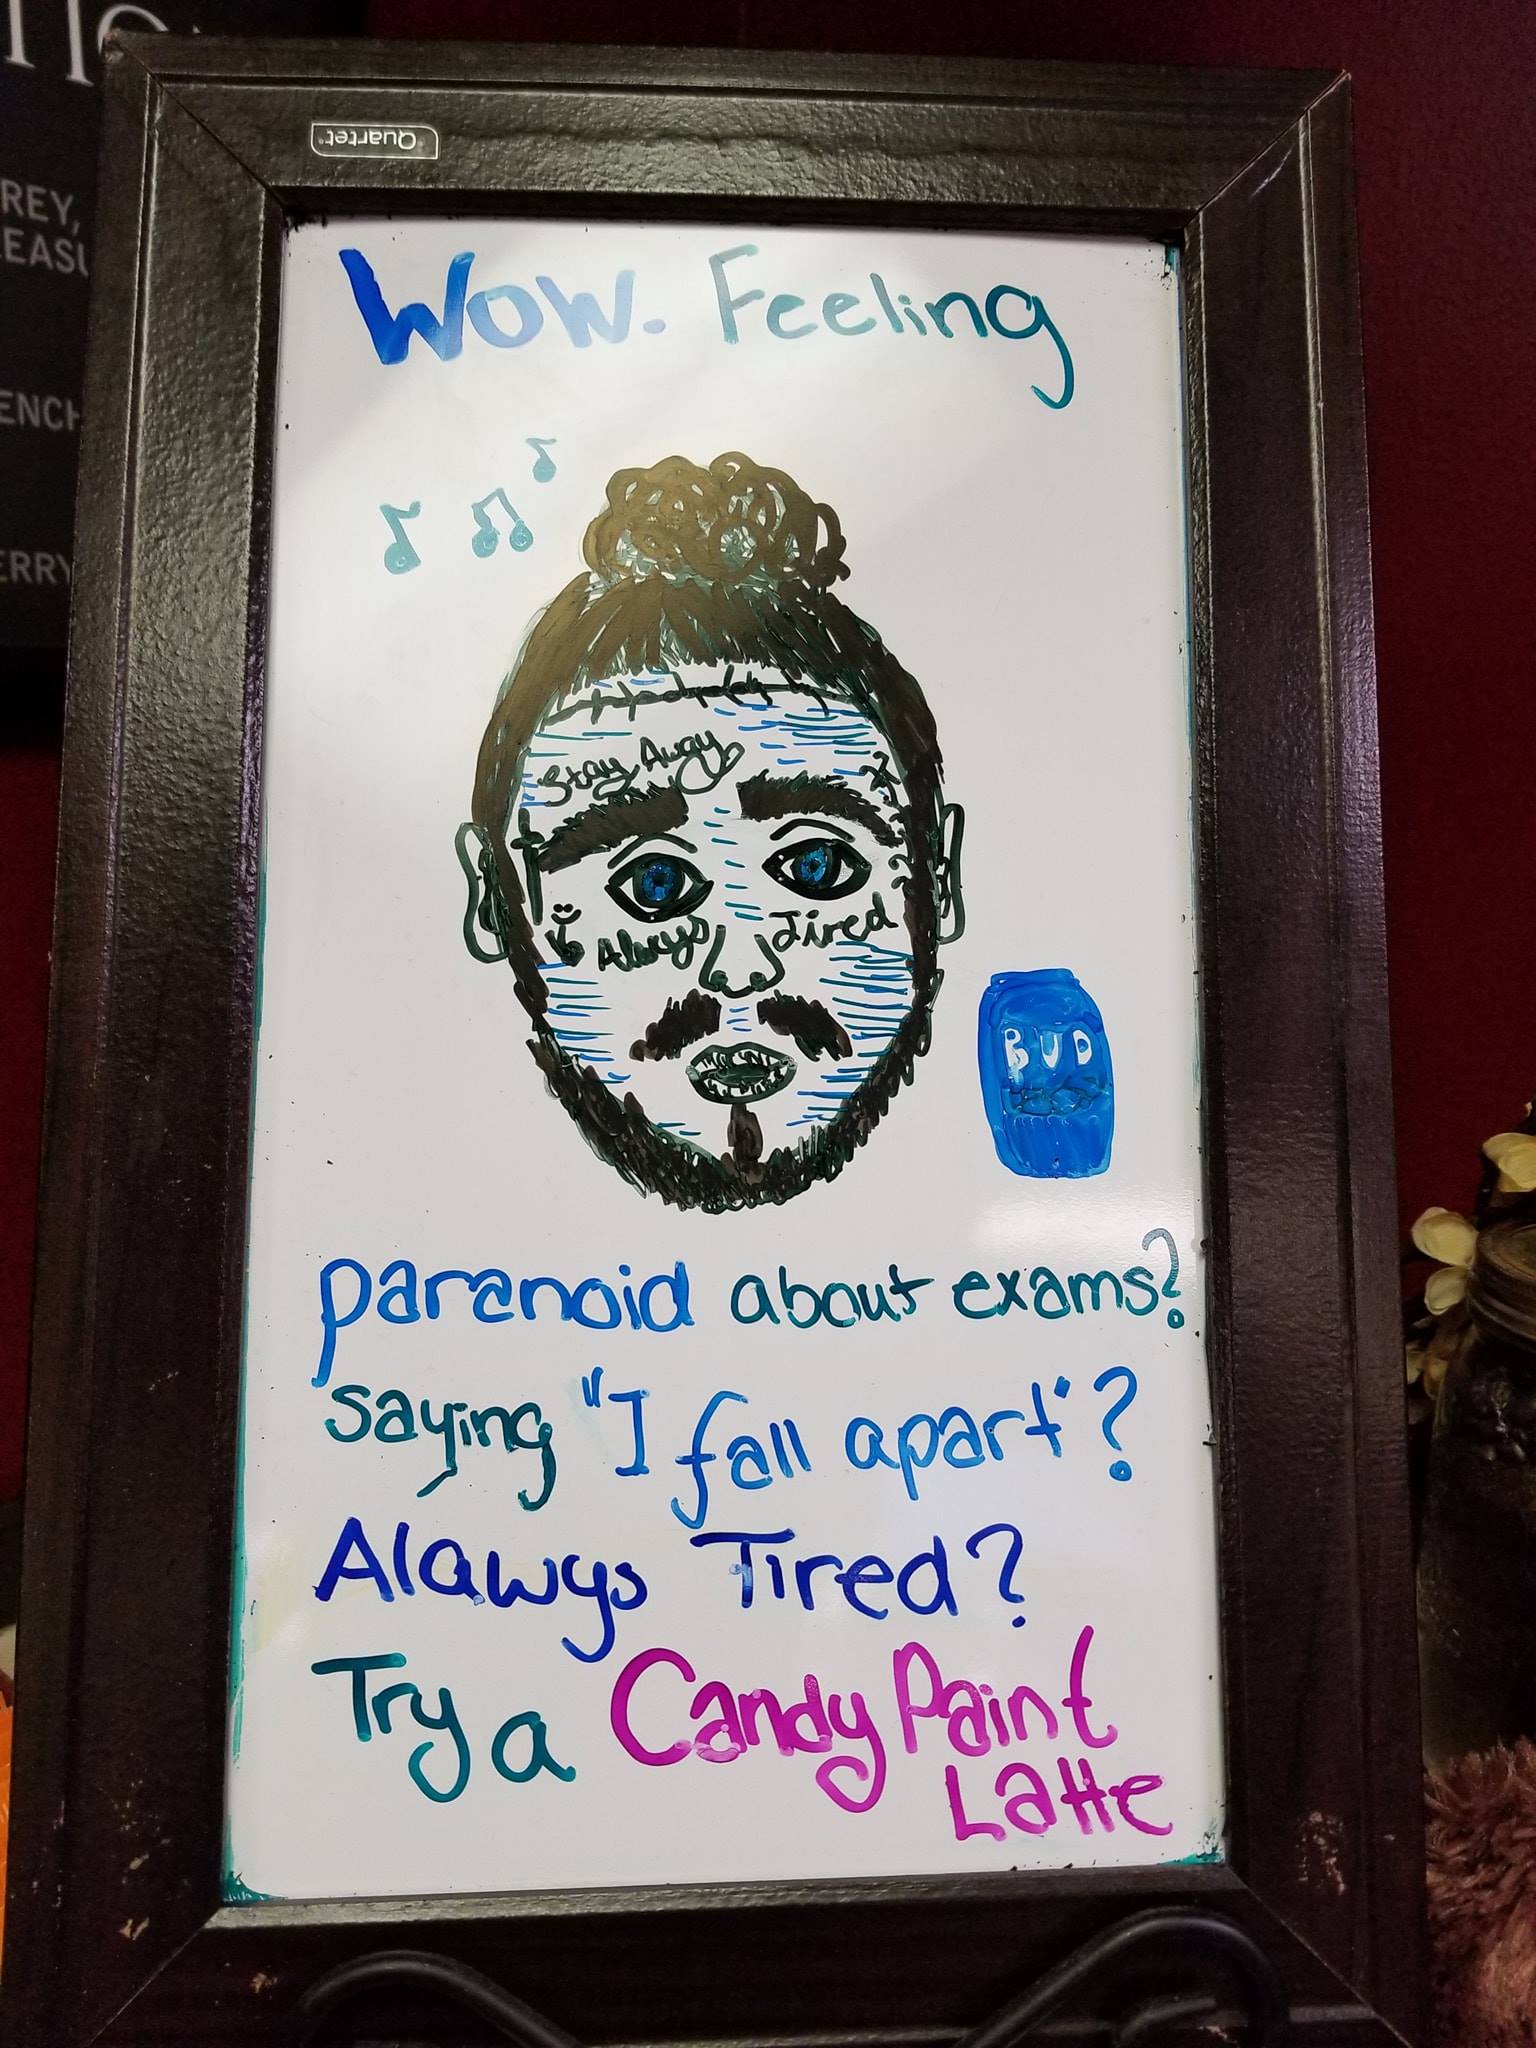 Quartet
REY,
EASU
ENCH
ERRY
Wow. Feeling
Stay Away
Always Tired
BUD
paranoid about exams?
saying "I fall apart"?
Alawys Tired?
Try a Candy Paint
Latte